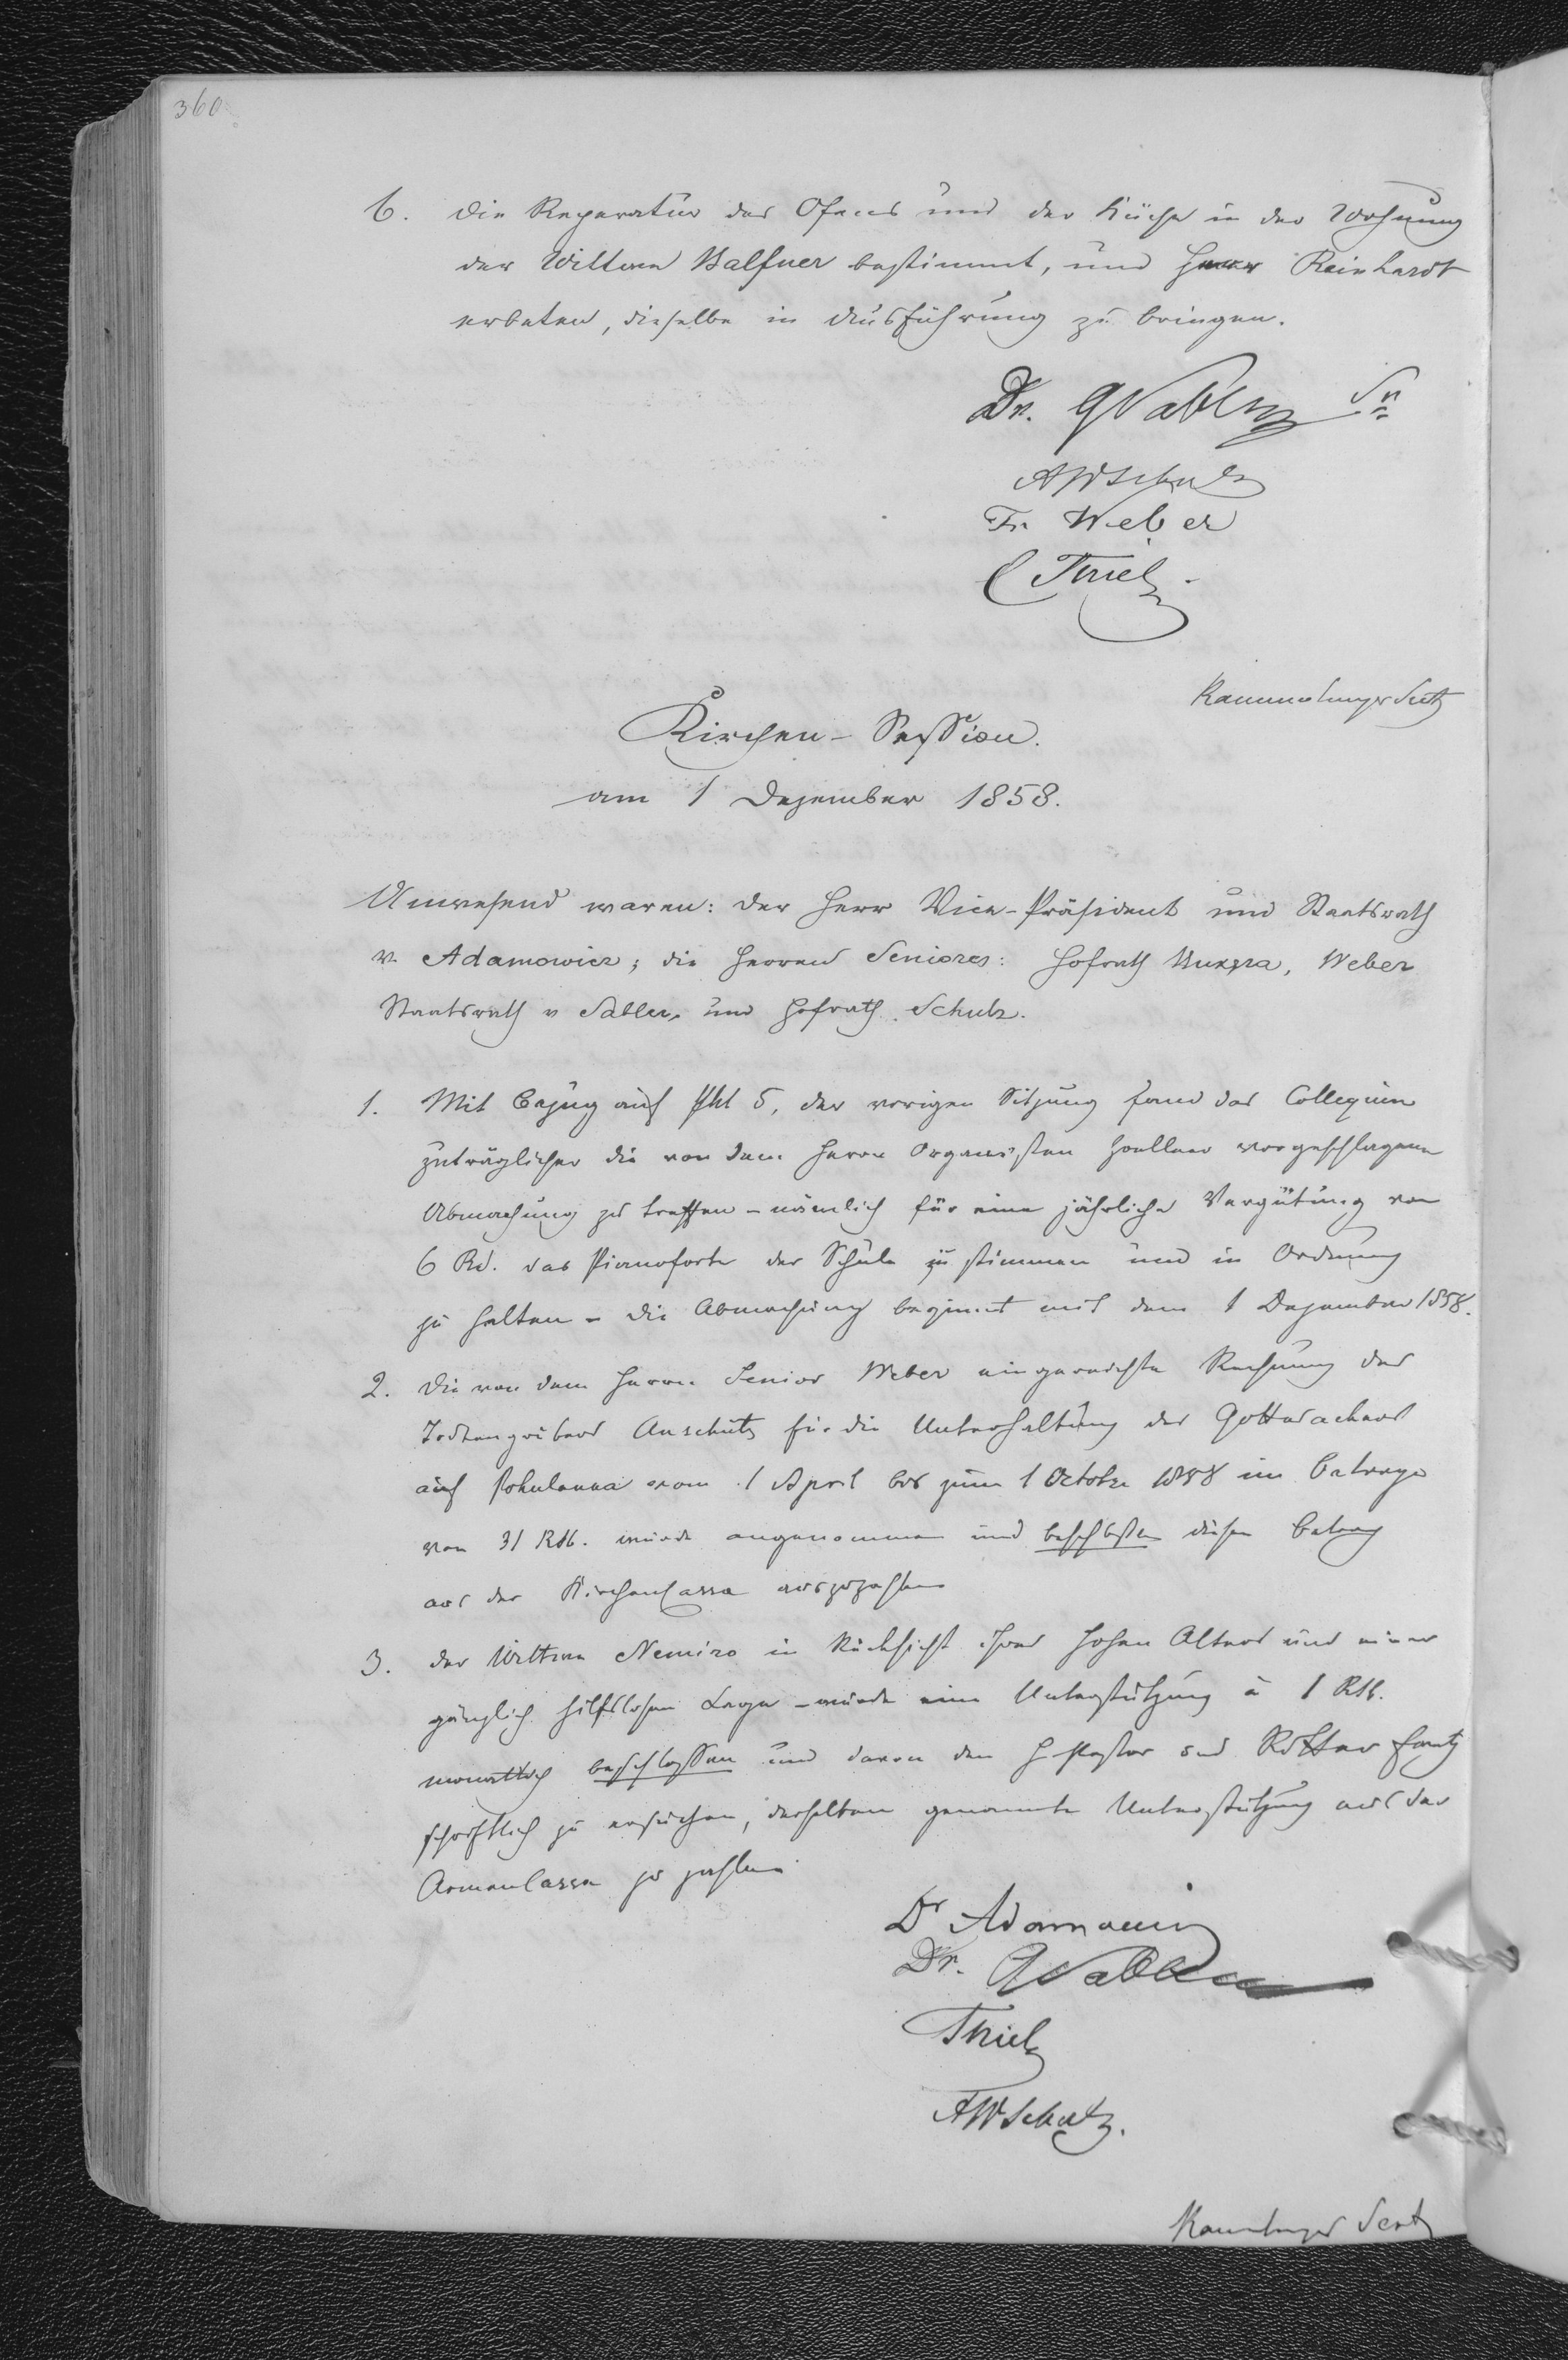 360
6. Die Reparatur des Ofens und der Küche in der Wohnung
der Wittwe Halfner bestimmt, und Herr Reinhardt
erbeten, dieselbe in Ausführung zu bringen.
Dr. GVabler Sr
AWSchulz
Fr. Weber
C Thiel
Secrt
Kirchen-Session.
am 1 Dezember 1858.
Anwesend waren: der Herr Vice-Präsident und Staatsrath
v. Adamowicz; die Herren Seniores: Hofrath Weber
Staatsrath v Sabler, und Hofrath Schulz.
1. Mit Bezug auf Pkt 5, der vorigen Sitzung fand das Collegium
zuträglicher die von dem Herrn Organisten vorgeschlagene
Abmachung zu treffen – nämlich für eine jährliche Vergütung von
6 Rb. das Pianoforte der Schule zu stimmen und in Ordnung
zu halten – die Abmachung beginnt mit dem 1 Dezember 1858.
2. Die von dem Herrn Senior Weber eingereichte Rechnung des
Todtengräbers Anschütz für die Unterhaltung des Gottesackers
auf Pohulanka vom 1 April bis zum 1 Octobr 1858 im Betrage
von 31 Rbl. wurde angenommen und beschlossen diesen Betrag
aus der KirchenCassa auszuzahlen
3. Der Wittwe Nemiro in Rücksicht ihres hohen Alters und einer
gänzlich hilflosen Lage – wurde eine Unterstützung à 1 Rbl.
monatlich beschlossen und davon den H Pastor und
schriftlich zu ersuchen, derselben genannte Unterstützung aus der
ArmenCassa zu zahlen.
Dr Adamowicz
Dr. GSabler
Thiel
AWSchulz.
Secrt